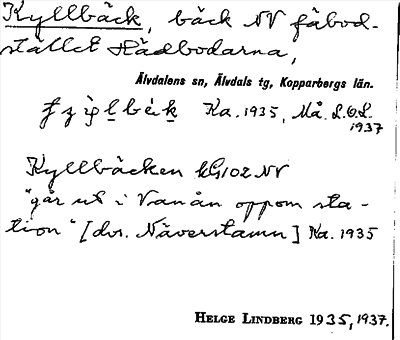 Kyllbäck, bäck NV fäbod-
stället Hådbodarna,
Älvdalens sn, Älvdals tg, Kopparbergs län.
Ka. 1935, Må. L.O.L.
1937
Kyllbäcken kG102 NV
"går ut i Vanån oppom sta-
tion" [dvs. Näverstamn] Ka. 1935
HELGE LINDBERG 1935, 1937.